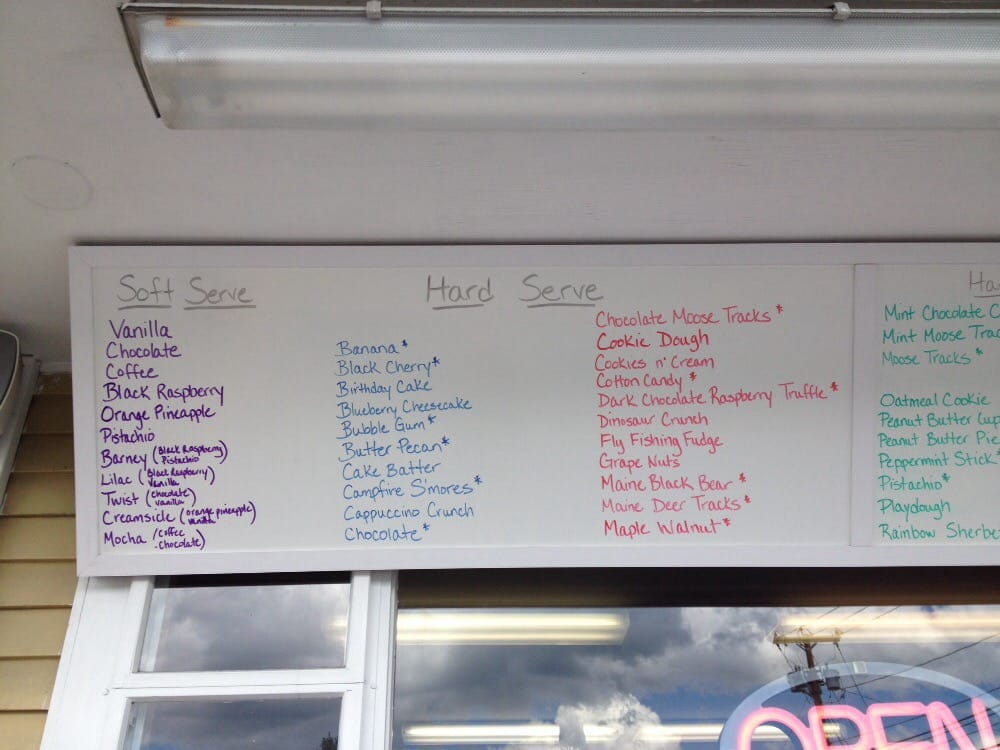 Soft Serve
Vanilla
Chocolate
Coffee
Black Raspberry
Orange Pineapple
Pistachio
Barney (Black Raspberry
Pistachio)
Lilac (Black Raspberry)
Vanilla
Twist (chocolate
vanilla)
Creamsicle (orange pineapple)
vanilla
Mocha (coffee
-chocolate)
Hard Serve
Banana*
Black Cherry*
Birthday Cake
Blueberry Cheesecake
Bubble Gum*
Butter Pecan*
Cake Batter
Campfire S'mores*
Cappuccino Crunch
Chocolate*
Chocolate Moose Tracks*
Cookie Dough
Cookies n' Cream
Cotton Candy*
Dark Chocolate Raspberry Truffle*
Dinosaur Crunch
Fly Fishing Fudge
Grape Nuts
Maine Black Bear*
Maine Deer Tracks*
Maple Walnut*
Mint Chocolate
Mint Moose
Moose Tracks*
Oatmeal Cookie
Peanut Butter
Peanut Butter Pie
Peppermint Stick*
Pistachio*
Playdough
Rainbow
OPEN